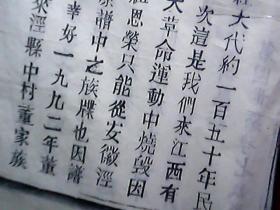 大代約一百五十年民
次這是我們來江西有
大革命運動中燒毀因
祖恩榮只能從安徽涇
譜中之族牒也因譜
幸好一九九二年董
來涇縣中村董家族